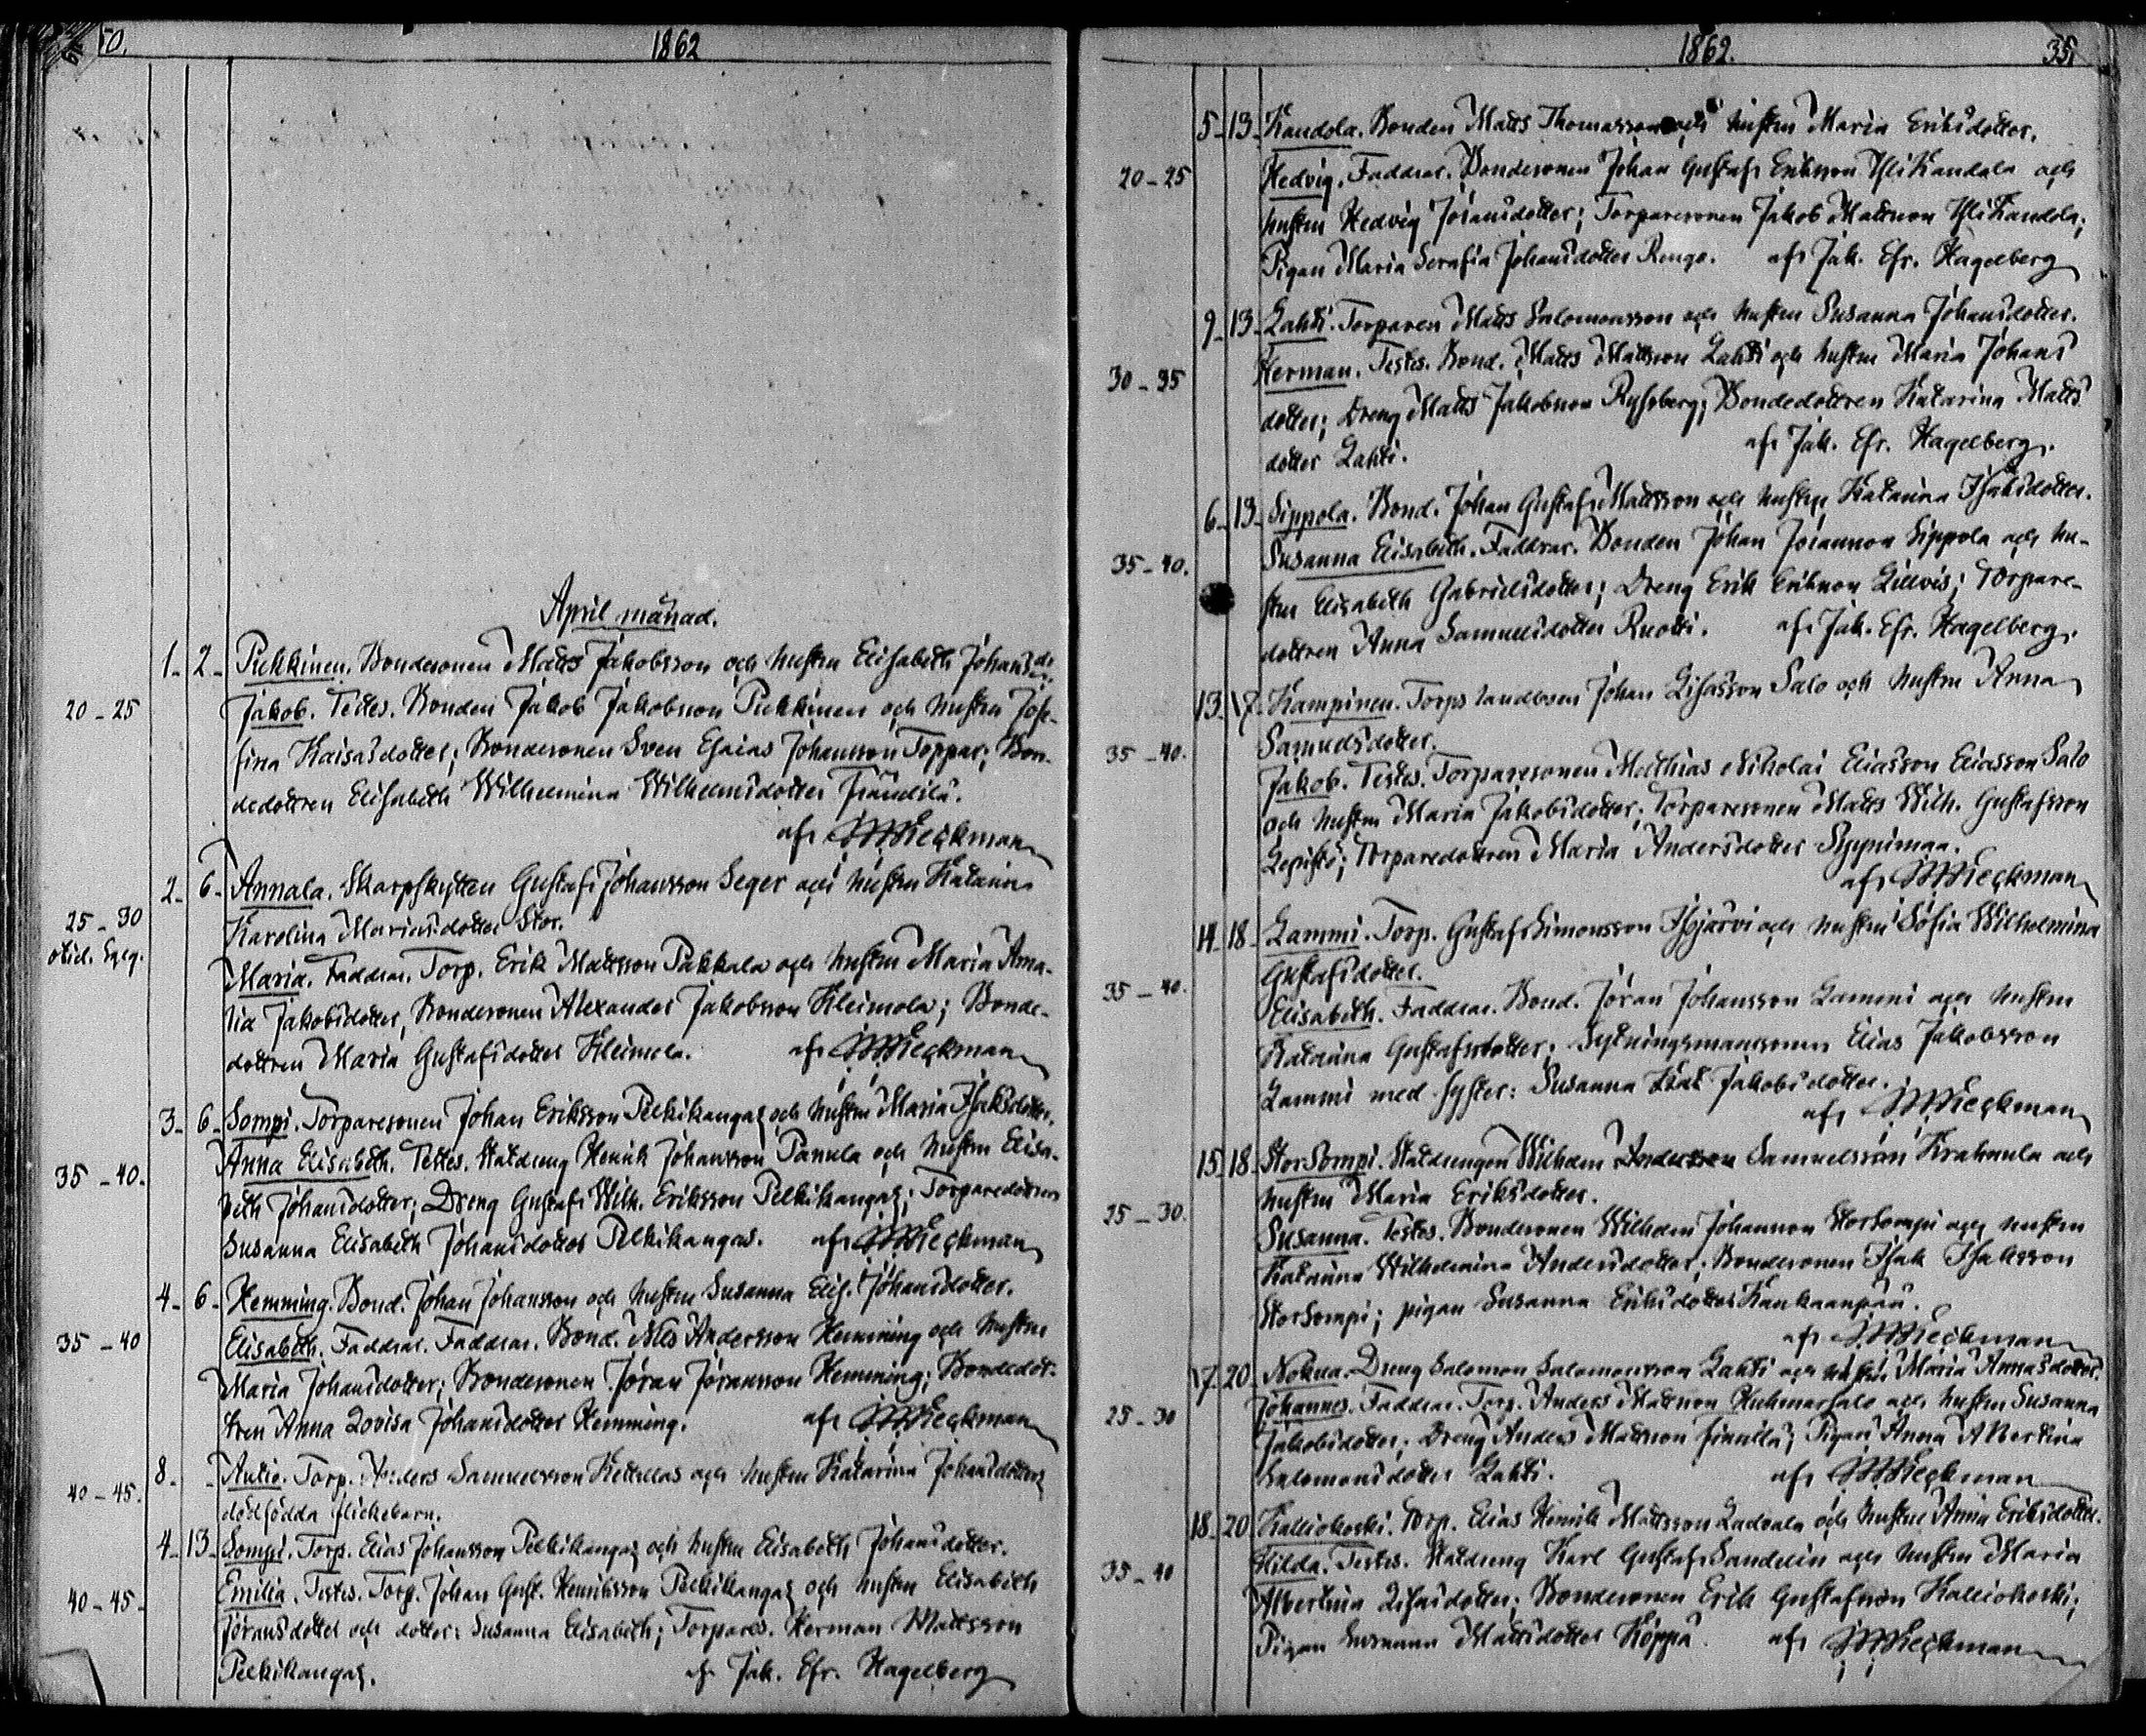 50.
1862
April månad.
1. 2. Pukkinen. Bondesonen Matts Jakobsson och hustru Elisabeth Johansdr.
20-25 Jakob. Testes. Bonden Jakob Jakobsson Pukkinen och hustru Jose-
fina Kaisasdotter; Bondesonen Sven Esaias Johansson Toppar; Bon-
dedottren Elisabeth Wilhelmina Wilhelmsdotter Frändilä.
af
2. 6. Annala. Skarpskytten Gustaf Johansson Seger och hustru Katarina
25-30 Karolina Mariasdotter Stor.
Maria. Faddrar. Torp. Erik Mattsson Pakkala och hustru Maria Ama-
lia Jakobsdotter, Bondesonen Alexander Jakobsson Kleimola; Bonde-
dottren Maria Gustafsdotter Kleimola. af
3. 6. Sompi. Torparesonen Johan Eriksson Pelkikangas och hustru Maria Isaksdotter.
35-40. Anna Elisabeth. Testes. Statdreng Henrik Johansson Panula och hustru Elisa-
beth Johansdotter; Dreng Gustaf Wilh. Eriksson Pelkikangas; Torparedottren
Susanna Elisabeth Johansdotter Pelkikangas. af
4. 6. Hemming. Bond. Johan Johansson och hustru Susanna Elis. Johansdotter.
35-40 Elisabeth. Faddrar. Faddrar. Bond. Nils Andersson Hemming och hustru
Maria Johansdotter; Bondesonen Jöran Jöransson Hemming; Bondedot-
tren Anna Lovisa Johansdotter Hemming. af
8. Autio. Torp. Anders Samuelsson Kettillas och hustru Katarina Johansdotters
40-45. dödfödda flickebarn.
4. 13. Sompi. Torp. Elias Johansson Pelkikangas och hustru Elisabeth Johansdotter.
Emilia. Testes. Torp. Johan Gust. Henriksson Pelkikangas och hustru Elisabeth
40-45. Jöransdotter och dotter: Susanna Elisabeth; Torpares. Herman Mattsson
Pelkikangas. af Jak. Efr. Hagelberg
1862. 35,
5. 13. Kandola. Bonden Matts Thomasson och hustru Maria Eriksdotter.
20-25 Hedvig. Faddrar. Bondesonen Johan Gustaf Eriksson Yli Kandola och
hustru Hedvig Jöransdotter; Torparesonen Jakob Mattsson Yli Kandola;
Pigan Maria Serafia Johansdotter Rengo. af Jak. Efr. Hagelberg
9. 13. Lahti. Torparen Matts Salomonsson och hustru Susanna Johansdotter.
30-35 Herman. Testes. Bond. Matts Mattsson Lahti och hustru Maria Johans
dotter; Dreng Matts Jakobsson Ryssberg; Bondedottren Katarina Matts
dotter Lahti. af Jak. Efr. Hagelberg.
6. 13. Sippola. Bond. Johan Gustaf Mattsson och hustru Katarina Isaksdotter.
35-40. Susanna Elisabeth. Faddrar. Bonden Johan Jöransson Sippola och hu-
stru Elisabeth Gabrielsdotter; Dreng Erik Eriksson Lillvis; Torpare-
dottren Anna Samuelsdotter Ruotti. af Jak. Efr. Hagelberg.
13. 17. Kampinen. Torps landbonden Johan Lisasson Salo och hustru Anna
35-40. Samuelsdotter.
Jakob. Testes. Torparesonen Matthias Nikolai Eliasson Eliasson Salo
och hustru Maria Jakobsdotter; Torparesonen Matts Wilh. Gustafsson
Lepistö; Torparedottren Maria Andersdotter
af
14. 18. Lammi. Torp. Gustaf Simonsson Isojärvi och hustru Sofia Wilhelmina
Gustafsdotter.
35-40. Elisabeth. Faddrar. Bond. Jöran Johansson Lammi och hustru
Katarina Gustafsdotter; Sytningsmanssonen Elias Jakobsson
Lammi med syster: Susanna Kat Jakobsdotter.
af
15. 18. StorSompi. Statdrengen Wilhelm Samuelsson Krahnula och
hustru Maria Eriksdotter.
25-30. Susanna. Testes. Bondesonen Wilhelm Johansson StorSompi och hustru
Katarina Wilhelmina Andersdotter; Bondesonen Isak Isaksson
StorSompi; pigan Susanna Eriksdotter Kankaanpää.
af
17. 20. Nokua. Dreng Salomon Salomonsson Lahti och hustru Maria Annasdotter.
25-30 Johannes. Faddrar. Torp. Anders Mattsson Huhmarsalo och hustru Susanna
Jakobsdotter; Dreng Anders Mattsson Finnilä; Pigan Anna Albertina
Salomonsdotter Lahti. af
18. 20 Kalliokoski. Torp. Elias Henrik Mattsson Ladvala och hustru Anna Eriksdotter.
35-40 Hilda. Testes. Statdreng Karl Gustaf Sandelin och hustru Maria
Albertina Lisasdotter; Bondesonen Erik Gustafsson Kalliokoski;
Pigan Susanna Mattsdotter Köppä. af